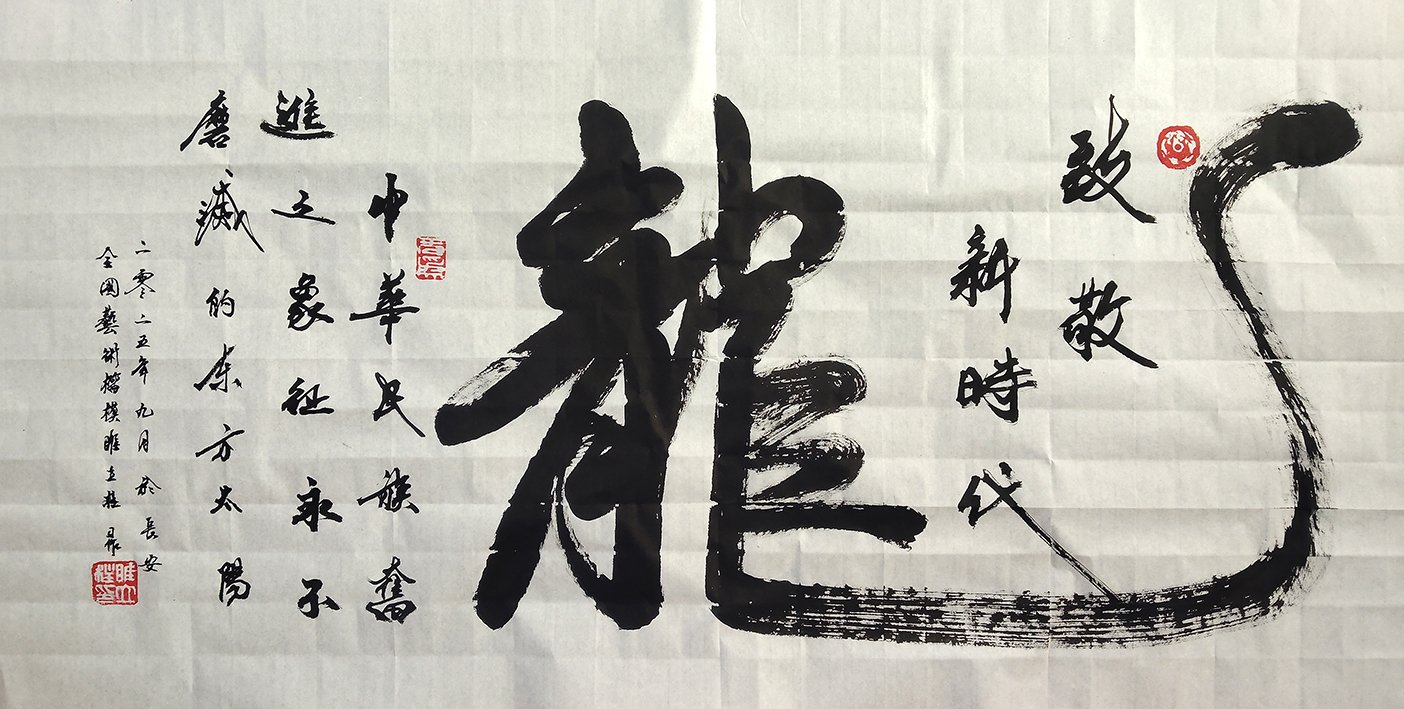 致敬
新時代
龍
中華民族奮
進之象征永不
磨滅的东方太陽
二零二五年九月於長安
全國藝術楷模睢立柱